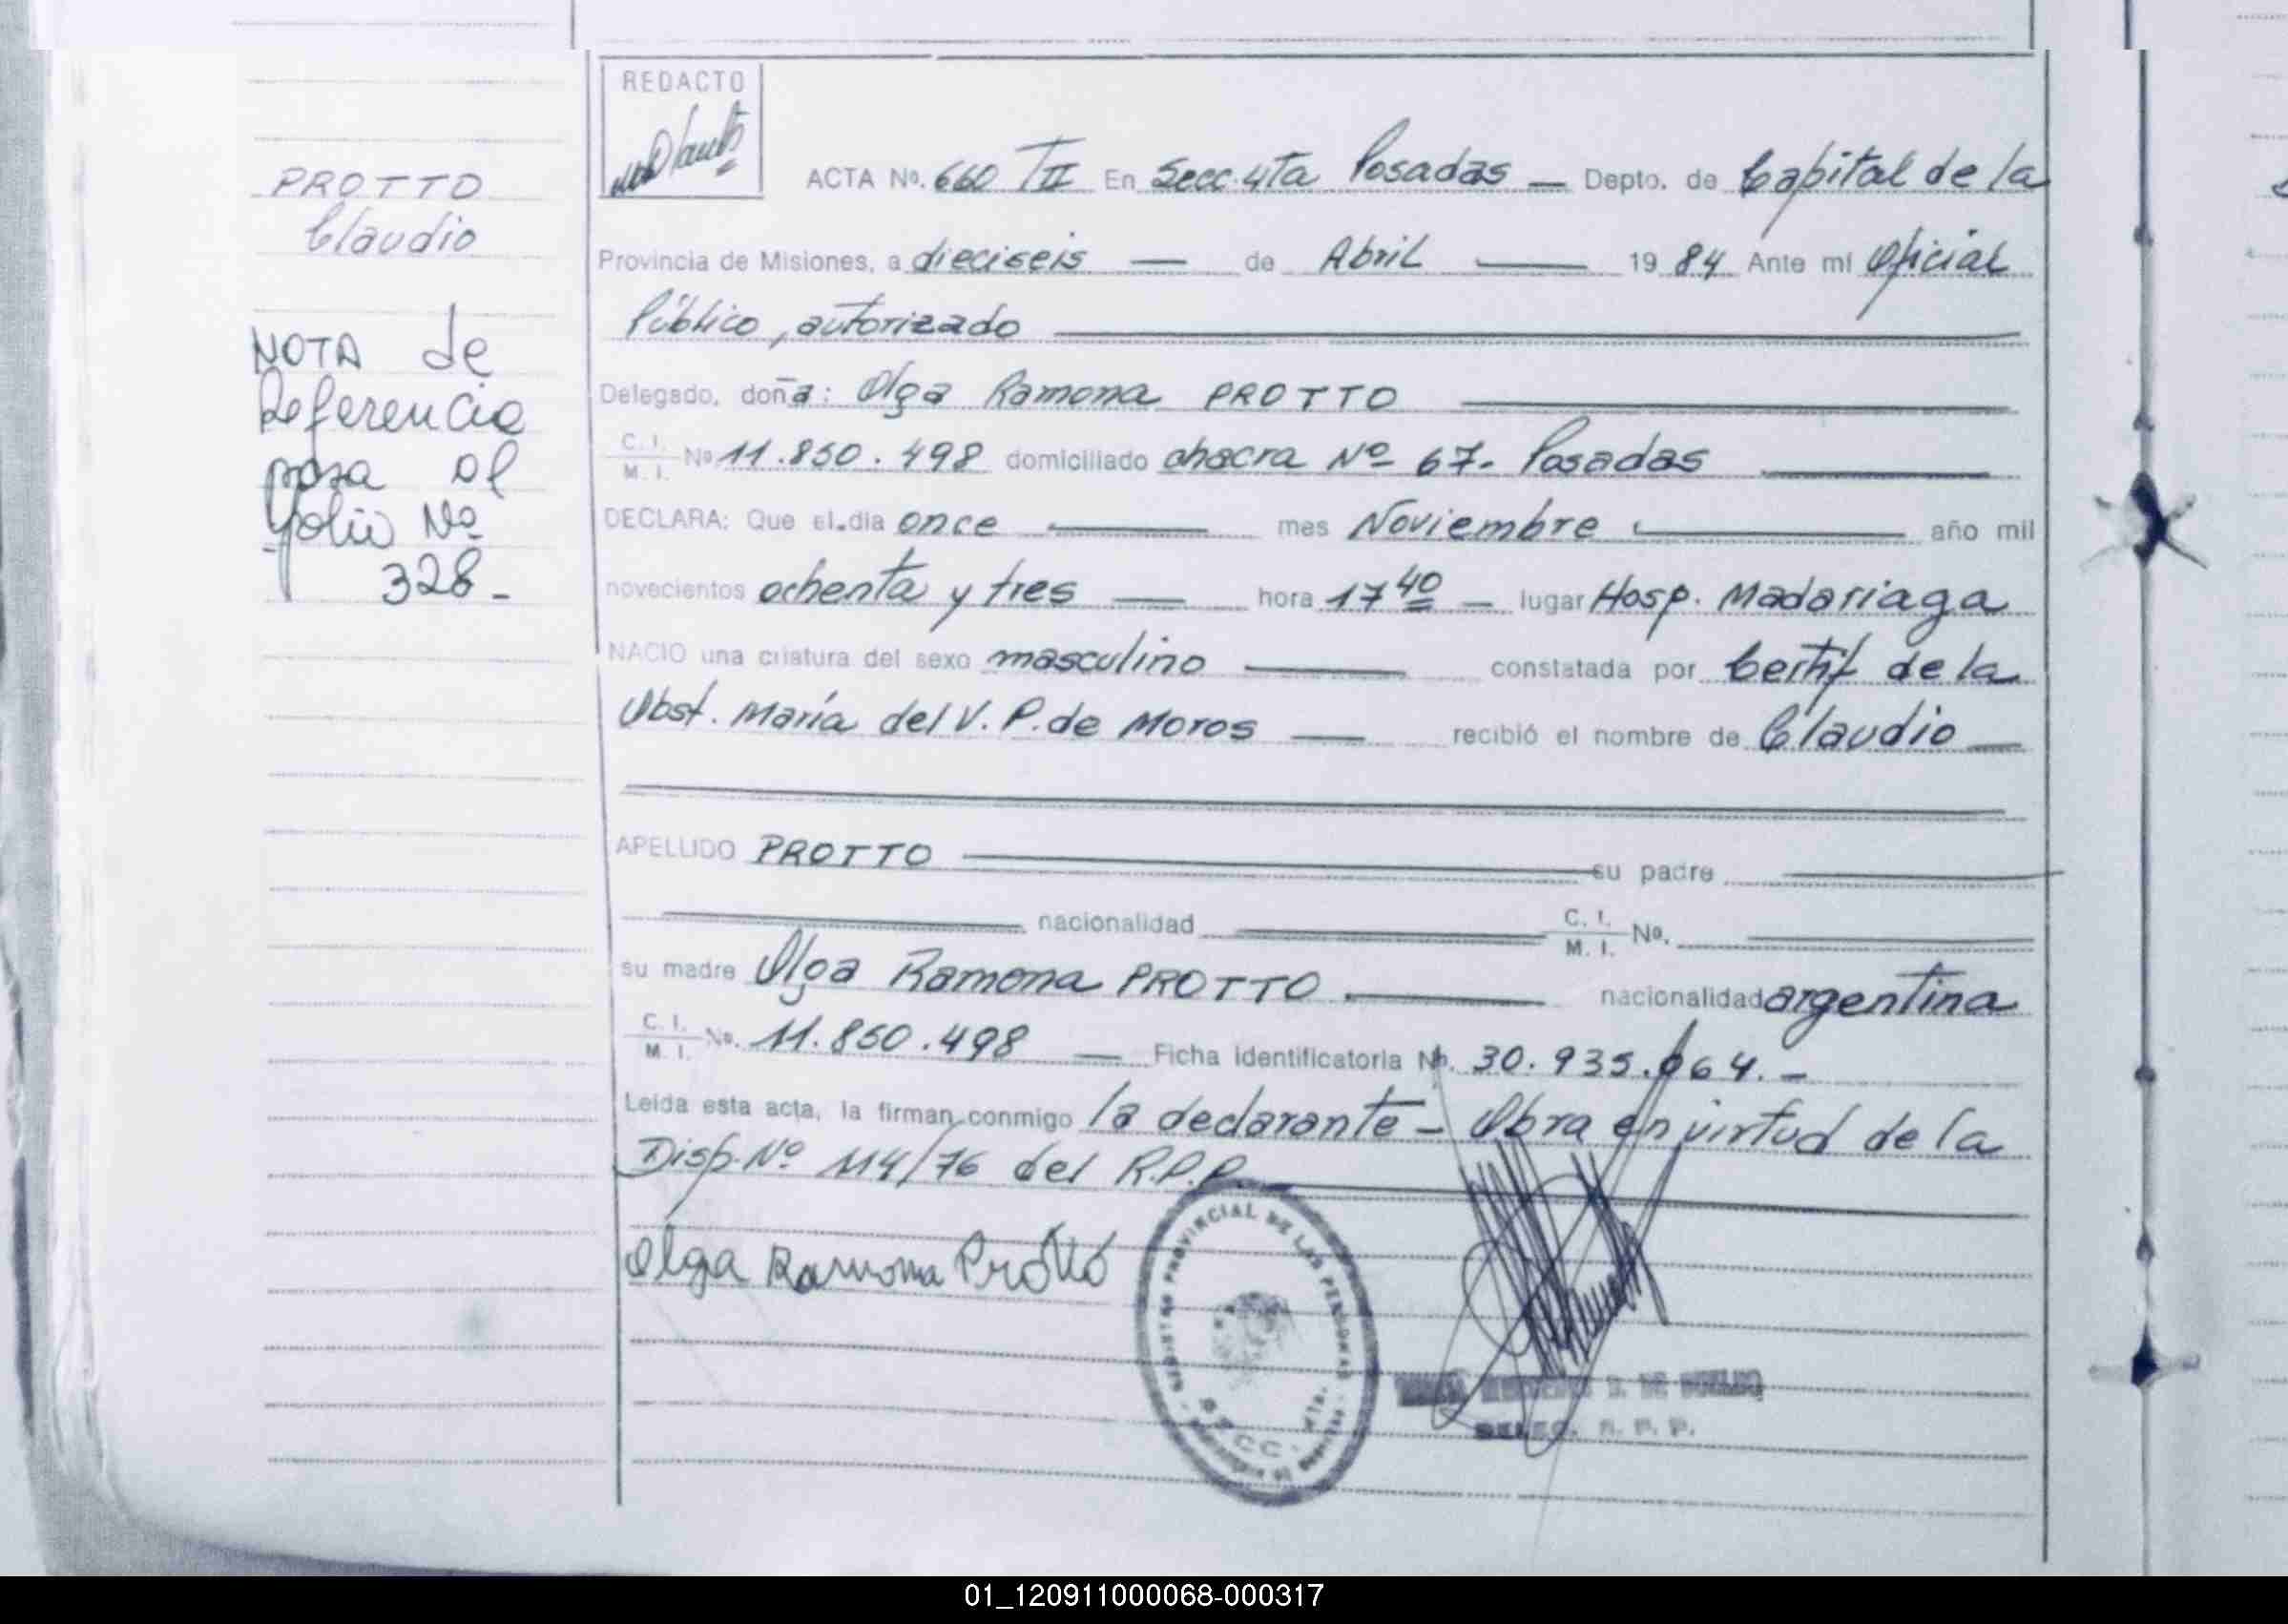 REDACTO
PROTTO
Claudio
NOTA de
Referencia
pasa al
folio Nº
328-
ACTA Nº. 660 TII En Secc. 4ta Posadas — Depto. de Capital de la
Provincia de Misiones, a dieciseis — de Abril — 19 84 Ante mi Oficial
Público, autorizado
Delegado, doña: Olga Ramona PROTTO
C. I. M. I. Nº 11.850.498 domiciliado chacra Nº 67- Posadas
DECLARA: Que el día once — mes Noviembre — año mil
novecientos ochenta y tres — hora 17 40 — lugar Hosp. Madariaga
NACIO una criatura del sexo masculino — constatada por Certif de la
Obst. María del V. P. de Moros — recibió el nombre de Claudio —
APELLIDO PROTTO — su padre —
— nacionalidad — C. I. M. I. Nº. —
su madre Olga Ramona PROTTO — nacionalidad argentina
C. I. M. I. Nº. 11.850.498 — Ficha identificatoria Nº. 30.935.064.-
Leída esta acta, la firman conmigo la declarante - Obra en virtud de la
Disp. Nº 114/76 del R.P.P.
Olga Ramona Protto
PROVINCIAL DE LAS PERSONAS
DELEG. R. P. P.
01_120911000068-000317